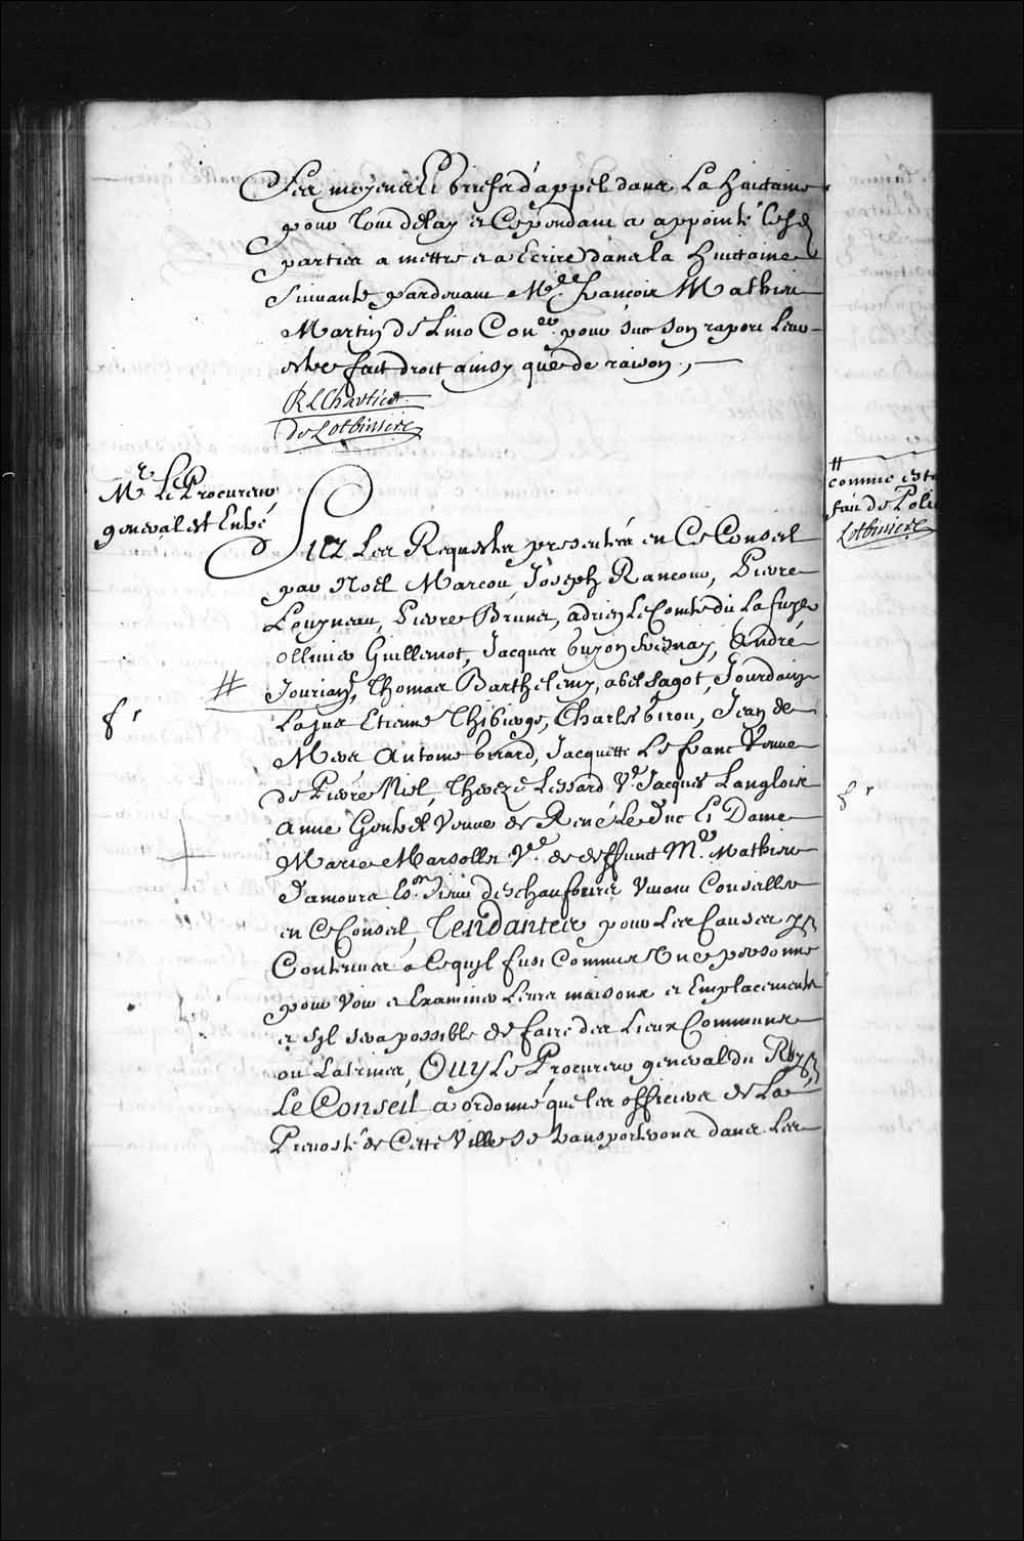 Ses moyens Et briefs d'appel dans La huictaine
pour tout delay et Cependant a appointé lesd.
parties a mettre et a Ecrire dans la huictaine
Suiuante pardeuant Me. françois Mathieu
Martin de Lino Coner. pour sur son raport Leur
estre fait droit ainsy que de raison ./.
R L Chartier
de Lotbiniere
Mr Le Procureur
general est Entré
SUR Les Requestes presentées en Ce Conseil
par Noël Marcou, Joseph Rancour, Pierre
Louyneau, Pierre Brunet, adrien Le Comte dit La fuze
Olliuier Guillemot, Jacques buyon fresnay, André
# Jourian, Thomas Barthelemy, abel Sagot, Jourdain
Lajus Etienne Thibierge, Charles birou, Jean de
Mers Antoine berard, Jacquette Le franc Veuue
de Pierre Niel, Thereze Lessard Ve. Jacques Langlois
Anne Gentil Veuue de René Le Duc Et Dame
Marie Marsollet Ve. de deffunct Mr. Mathieu
Damours Eer. Sieur deschaufours Viuant Conseiller
en Ce Conseil, Tendantes pour Les Causes y
Contenues a Cequ'jl fust Commis Vne personne
pour Voir et Examiner Leurs maisons et Emplacements
et s'jl sera possible de faire des Lieux Communs
ou Latrines, OUY Le Procureur general du Roy
Le Conseil a ordonné que les officiers de La
Preuosté de Cette Ville se transporteront dans Les
#
comme est
fait de Poli
Lotbiniere